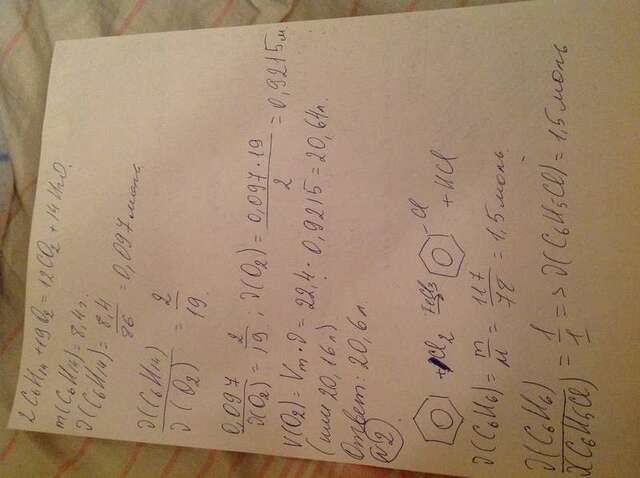 2C₆H₁₄ + 19O₂ = 12CO₂ + 14H₂O.
m(C₆H₁₄) = 8,4 г.
ν(C₆H₁₄) = 8,4/86 = 0,097 моль
ν(C₆H₁₄)/ν(O₂) = 2/19.
0,097/ν(O₂) = 2/19; ν(O₂) = 0,097·19/2 = 0,9215 м.
V(O₂) = Vm·ν = 22,4·0,9215 = 20,64 л.
(или 20,16 л)
Ответ: 20,6 л.
№2
+ Cl₂ FeCl₃ → Cl + HCl
ν(C₆H₆) = m/M = 117/78 = 1,5 моль
ν(C₆H₆)/ν(C₆H₅Cl) = 1/1 => ν(C₆H₅Cl) = 1,5 моль